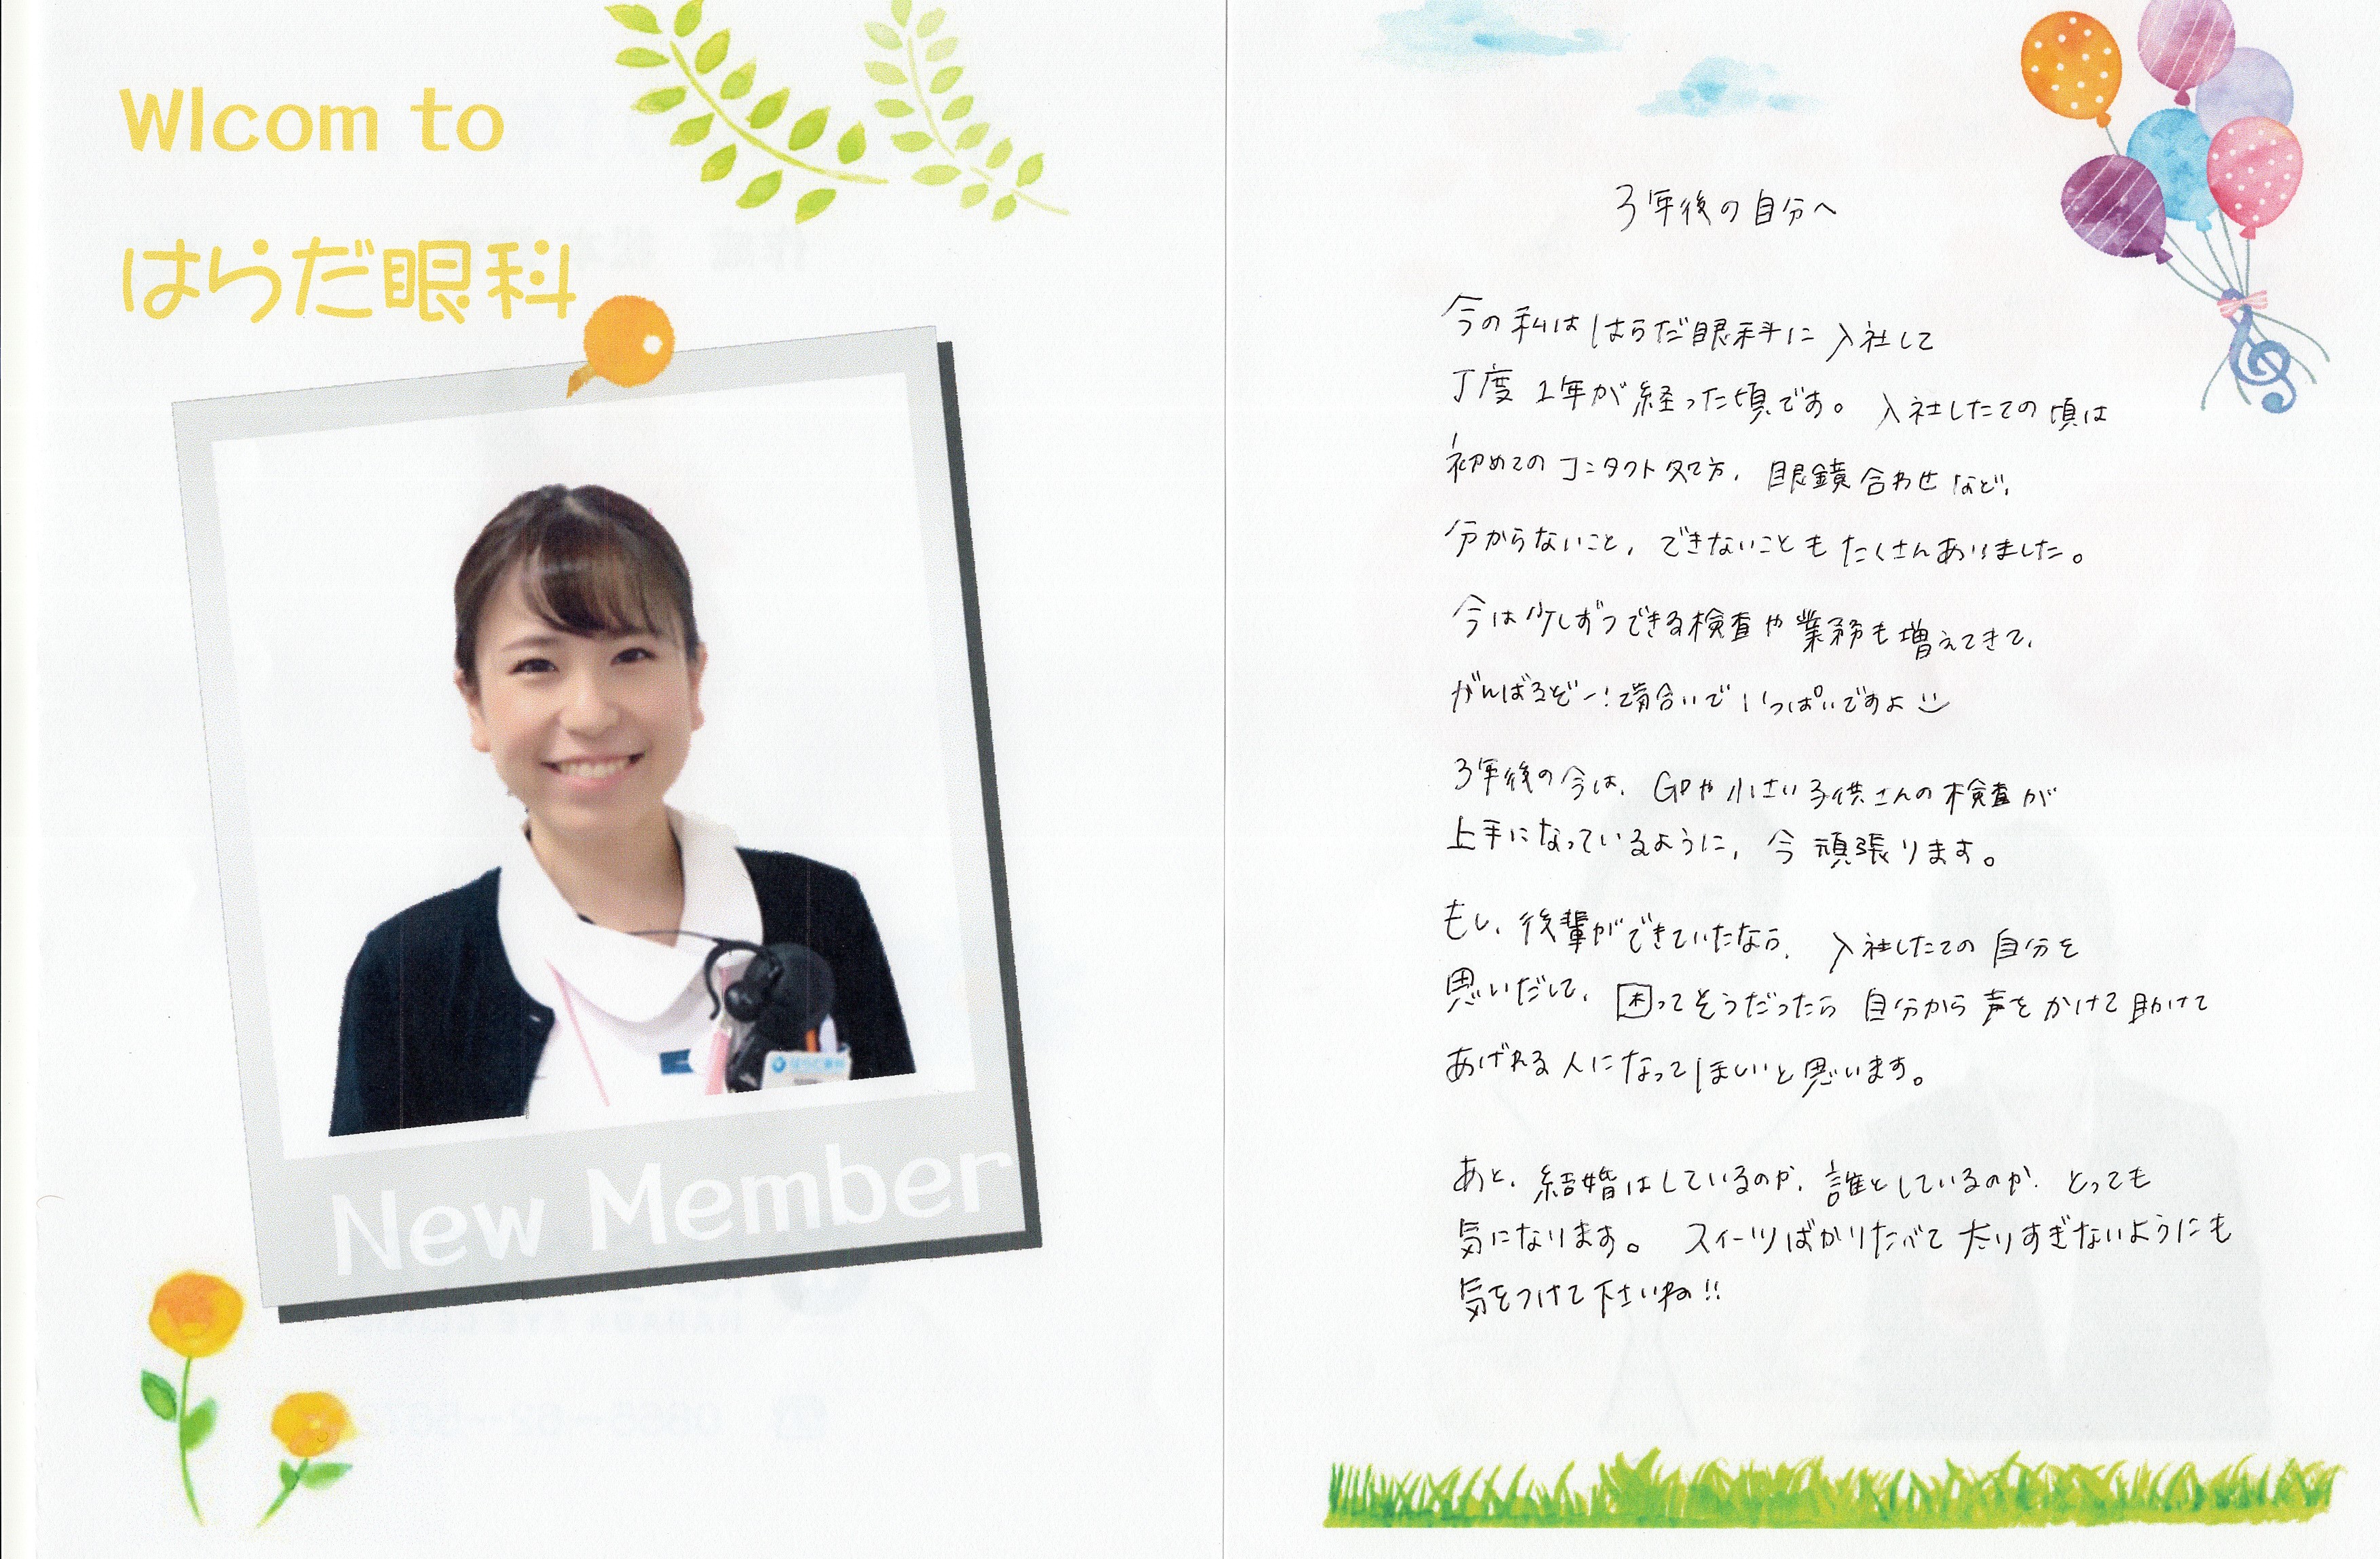 Wlcom to
はらだ眼科
はらだ眼科
New Member
3年後の自分へ
今の私ははらだ眼科に入社して
丁度1年が経った頃です。入社したての頃は
初めてのコンタクト処方、眼鏡合わせなど、
分からないこと、できないこともたくさんありました。
今は少しずつできる検査や業務も増えてきて、
がんばるぞー!て気合いでいっぱいですよ
3年後の今は、GPや小さい子供さんの検査が
上手になっているように、今頑張ります。
もし、後輩ができていたなら、入社したての自分を
思いだして、困ってそうだったら自分から声をかけて助けて
あげれる人になってほしいと思います。
あと、結婚はしているのか、誰としているのか、とっても
気になります。スイーツばかりたべて太りすぎないようにも
気をつけて下さいね!!